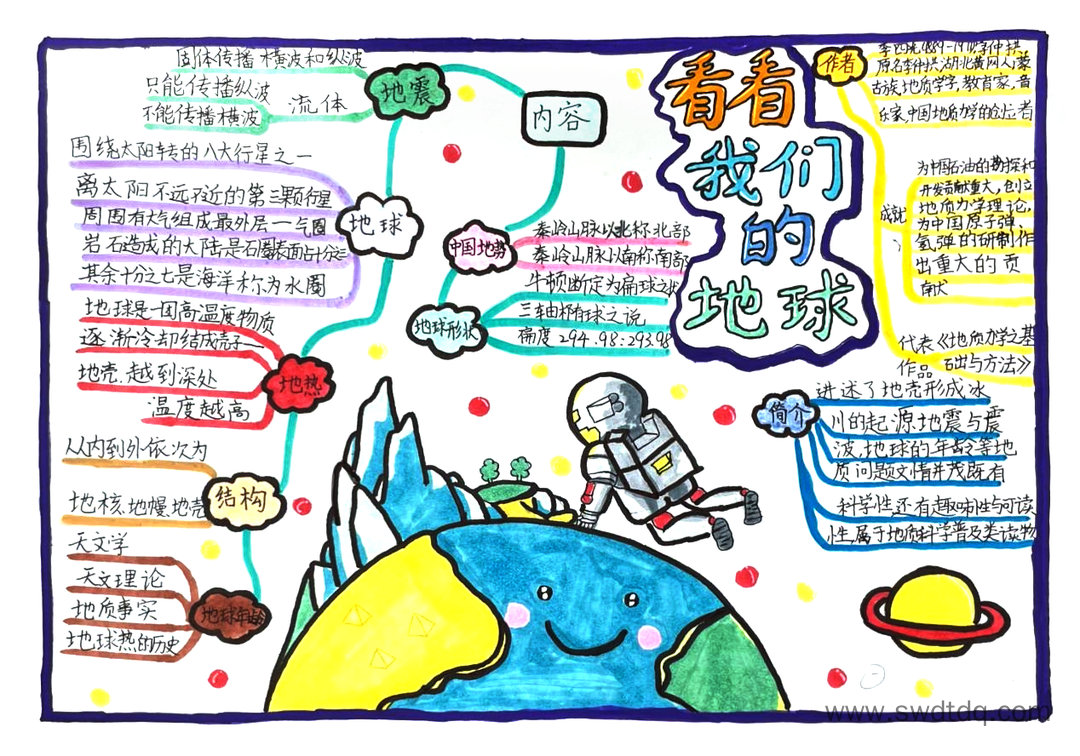 看看
我们
的
地球
作者
李四光1889-1971字仲拱
原名李仲拱湖北黄冈人蒙
古族,地质学家,教育家,音
乐家,中国地质力学的创立者
成就
为中国石油的勘探和
开发贡献重大,创立
地质力学理论,
为中国原子弹,
氢弹的研制作
出重大的贡
献
代表
作品
《地质力学之基
础与方法》
简介
进述了地壳形成冰
川的起源地震与震
波,地球的年龄等地
质问题文情并茂既有
科学性还有趣味性与可读
性,属于地质科学普及类读物
内容
地震
固体传播 横波和纵波
流体
只能传播纵波
不能传播横波
地球
围绕太阳转的八大行星之一
离太阳不远不近的第三颗行星
周围有大气组成最外层一气圈
岩石造成的大陆是石圈表面占十分三
其余十分之七是海洋称为水圈
地热
地球是一团高温度物质
逐渐冷却结成壳子
地壳,越到深处
温度越高
结构
从内到外依次为
地核,地幔,地壳
地球年龄
天文学
天文理论
地质事实
地球热的历史
中国地势
秦岭山脉以北称北部
秦岭山脉以南称南部
地球形状
牛顿断定为扁球之状
三轴椭球之说
扁度294.98:293.98
www.swdtdq.com